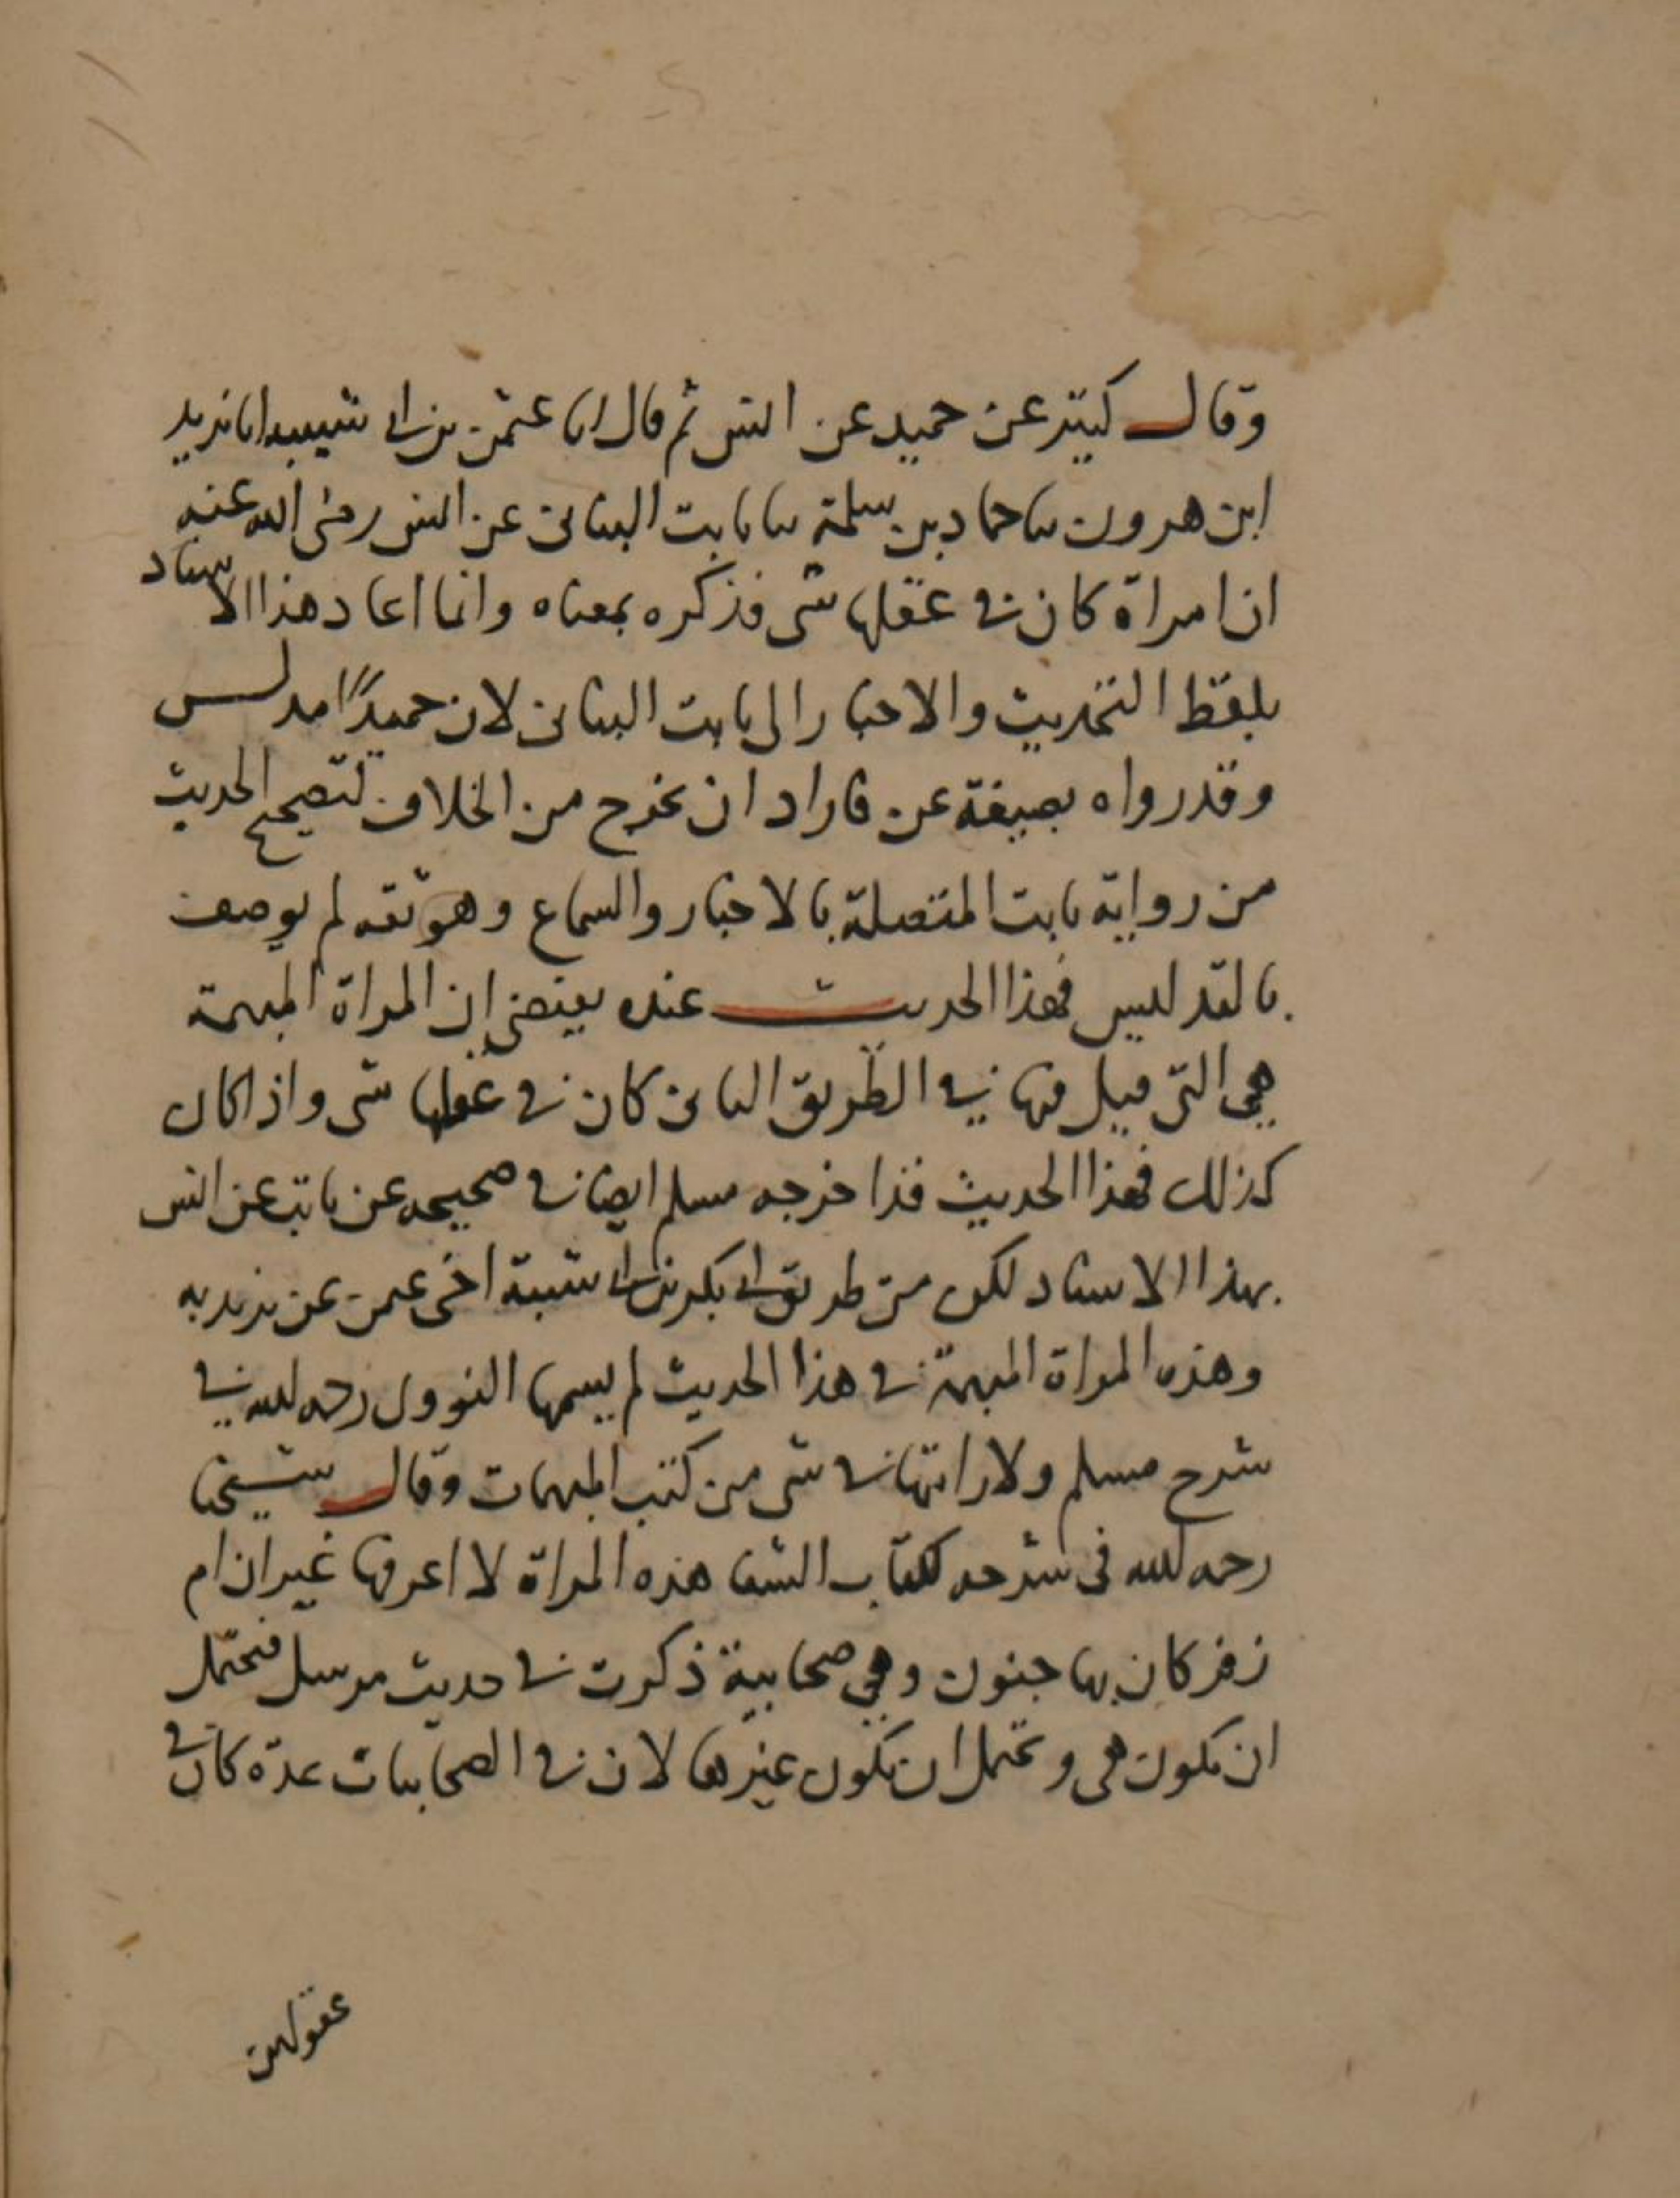 وقال كثير عن حميد عن انس ثم قال انا عثمن بن ابى شيبه انا يزيد
ابن هرون ثنا حماد بن سلمة ثنا ثابت البنانى عن انس رضى الله عنه
ان امراة كان فى عقلها شى فذكره بمعناه وانما اعاد هذا الاسناد
بلفظ التحديث والاخبار الى ثابت البنانى لان حميدًا مدلس
وقد رواه بصيغة عن فاراد ان يخرج من الخلاف لتصحيح الحديث
من رواية ثابت المتصلة بالاخبار والسماع وهو ثقه لم يوصف
بالتدليس فهذا الحديث عنده يقتضى ان المراة المبهمة
هي التى قيل فيها في الطريق الثانى كان فى عقلها شى واذا كان
كذلك فهذا الحديث قد اخرجه مسلم ايضا فى صحيحه عن ثابت عن انس
بهذا الاسناد لكن من طريق ابى بكر بن ابى شيبة اخى عثمن عن يزيد به
وهذه المراة المبهمة فى هذا الحديث لم يسمها النووى رحمه الله في
شرح مسلم ولا رايتها فى شى من كتب المبهمات وقال شيخنا
رحمه الله فى شرحه لكتاب الشفا هذه المراة لا اعرفها غير ان ام
زفر كان بها جنون وهي صحابية ذكرت فى حديث مرسل فيحتمل
ان تكون هى ويحتمل ان تكون غيرها لان فى الصحابيات عدة كان فى
عقولهن